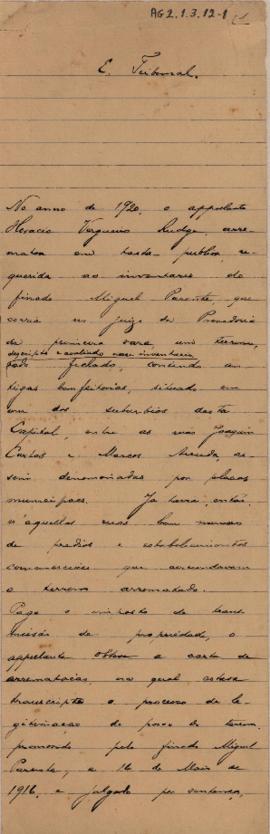 AG2.1.3.12-1
E. Tribunal.
No anno de 1920, o appellante
Horacio Vergueiro Rudge, arre-
matou em hasta publica, re-
querida ao inventario do
finado Miguel Parente, que
corria no juizo da Provedoria
da primeira vara, um terreno,
descripto e avaliado nesse inventario,
todo fechado, contendo an-
tigas bemfeitorias, situado em
um dos suburbios desta
Capital, entre as ruas Joaquim
Carlos e Marcos Arruda, as-
sim denominadas por placas
municipaes. Ja havia, então,
n'aquellas ruas bom numero
de predios e estabelecimentos
commerciaes que circundavam
o terreno arrematado.
Pago o imposto de trans-
missão de propriedade, o
appellante obteve a carta de
arrematação, na qual estava
transcripto o processo de le-
gitimação de posse do terreno,
promovido pelo finado Miguel
Parente, a 16 de Maio de
1916, e julgado por sentença,